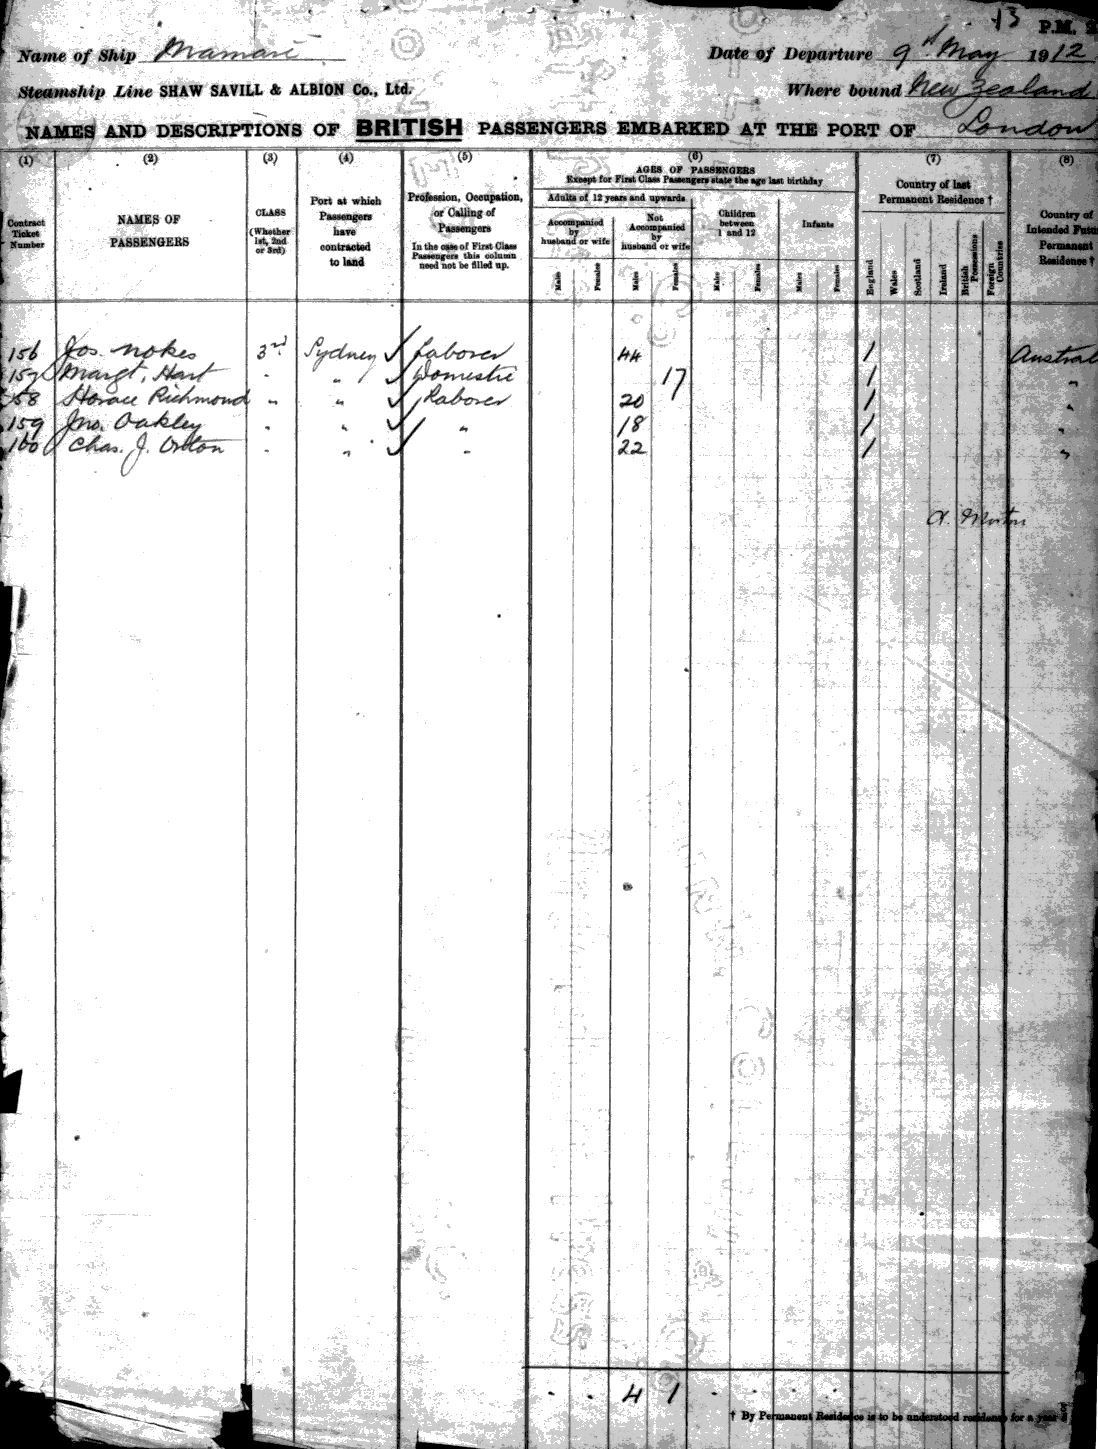 13
P.M. 2
Name of Ship Mamari Date of Departure 9th May 1912
Steamship Line SHAW SAVILL & ALBION Co., Ltd. Where bound New Zealand
NAMES AND DESCRIPTIONS OF BRITISH PASSENGERS EMBARKED AT THE PORT OF London
(1) (2) (3) (4) (5) (6) (7) (8)
Contract Ticket Number
NAMES OF PASSENGERS
CLASS (Whether 1st, 2nd or 3rd)
Port at which Passengers have contracted to land
Profession, Occupation, or Calling of Passengers
In the case of First Class Passengers this column need not be filled up.
AGES OF PASSENGERS
Except for First Class Passengers state the age last birthday
Adults of 12 years and upwards
Accompanied by husband or wife
Not Accompanied by husband or wife
Children between 1 and 12
Infants
Males Females Males Females Males Females Males Females
Country of last Permanent Residence †
England Wales Scotland Ireland British Possessions Foreign Countries
Country of Intended Futu Permanent Residence †
156 Jos. Nokes 3rd Sydney ✓ Laborer 44 1 Austral
157 Margt. Hart " " ✓ Domestic 17 1 "
158 Horace Richmond " " ✓ Laborer 20 1 "
159 Jno. Oakley " " ✓ " 18 1 "
160 Chas. J. Orton " " ✓ " 22 1 "
A. Morton
. . 4 1 . . . .
† By Permanent Residence is to be understood residence for a year